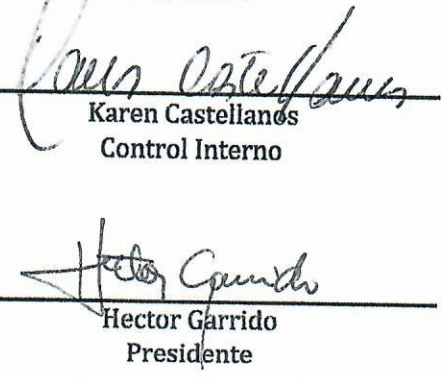 Karen Castellanos
Karen Castellanos
Control Interno
Hector Garrido
Hector Garrido
Presidente